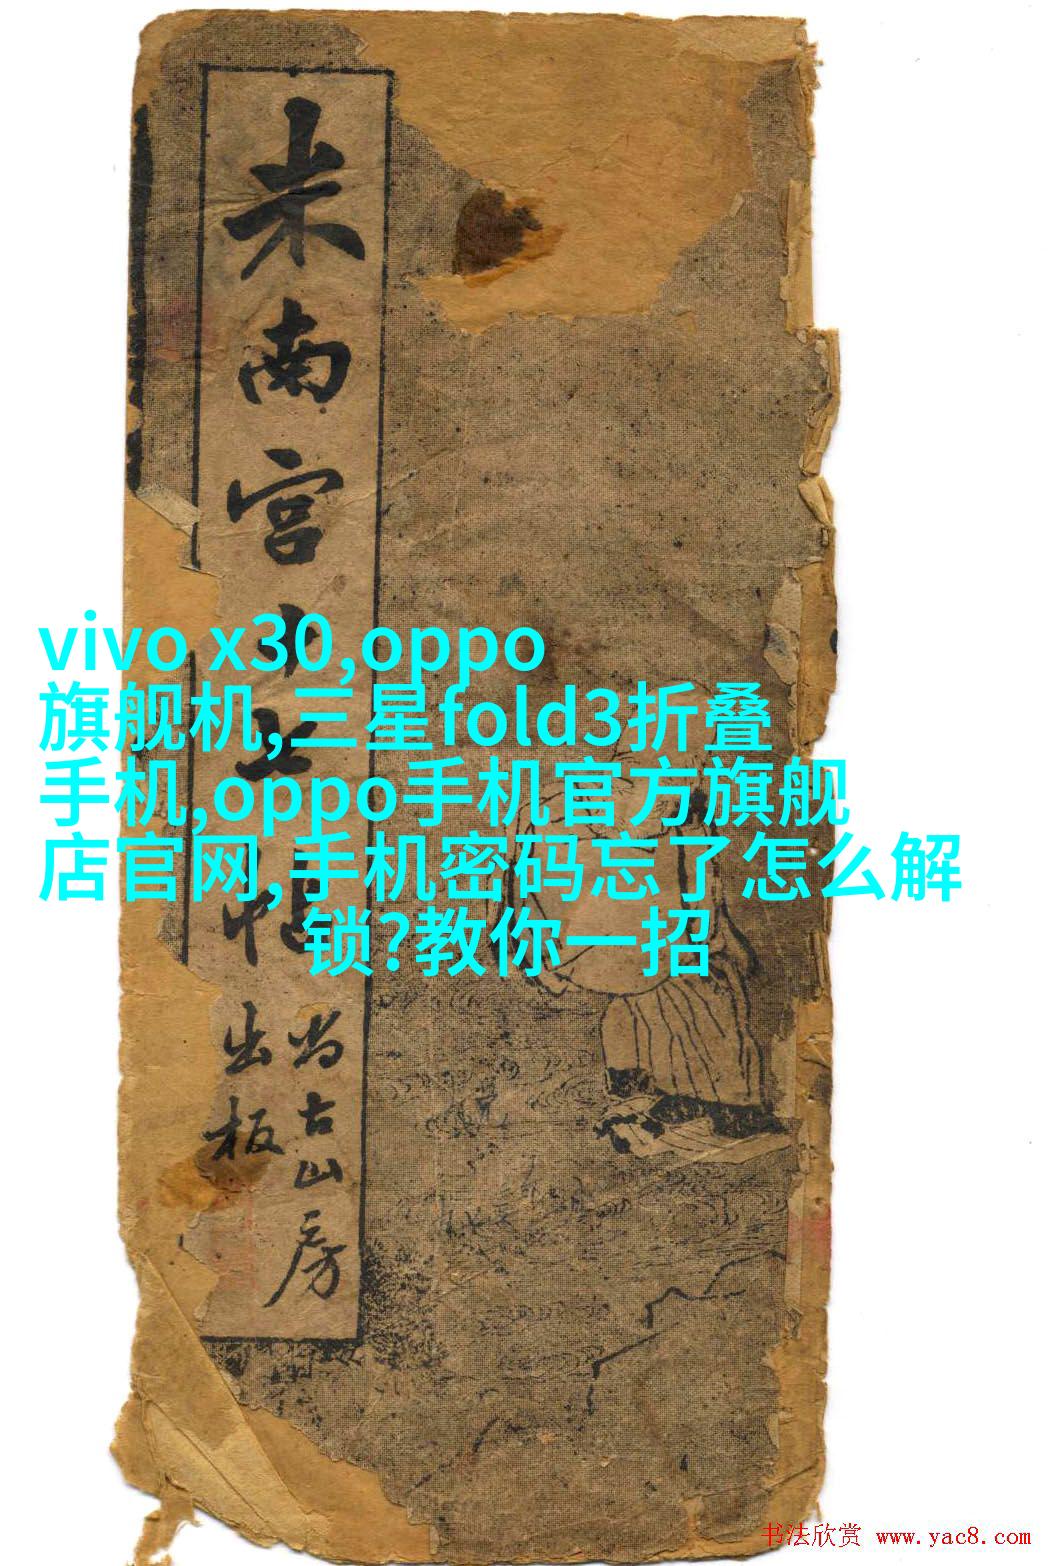 米南宮
帖
尚古山房
出版
vivo x30,oppo
旗舰机,三星fold3折叠
手机,oppo手机官方旗舰
店官网,手机密码忘了怎么解
锁?教你一招
书法欣赏 www.yac8.com